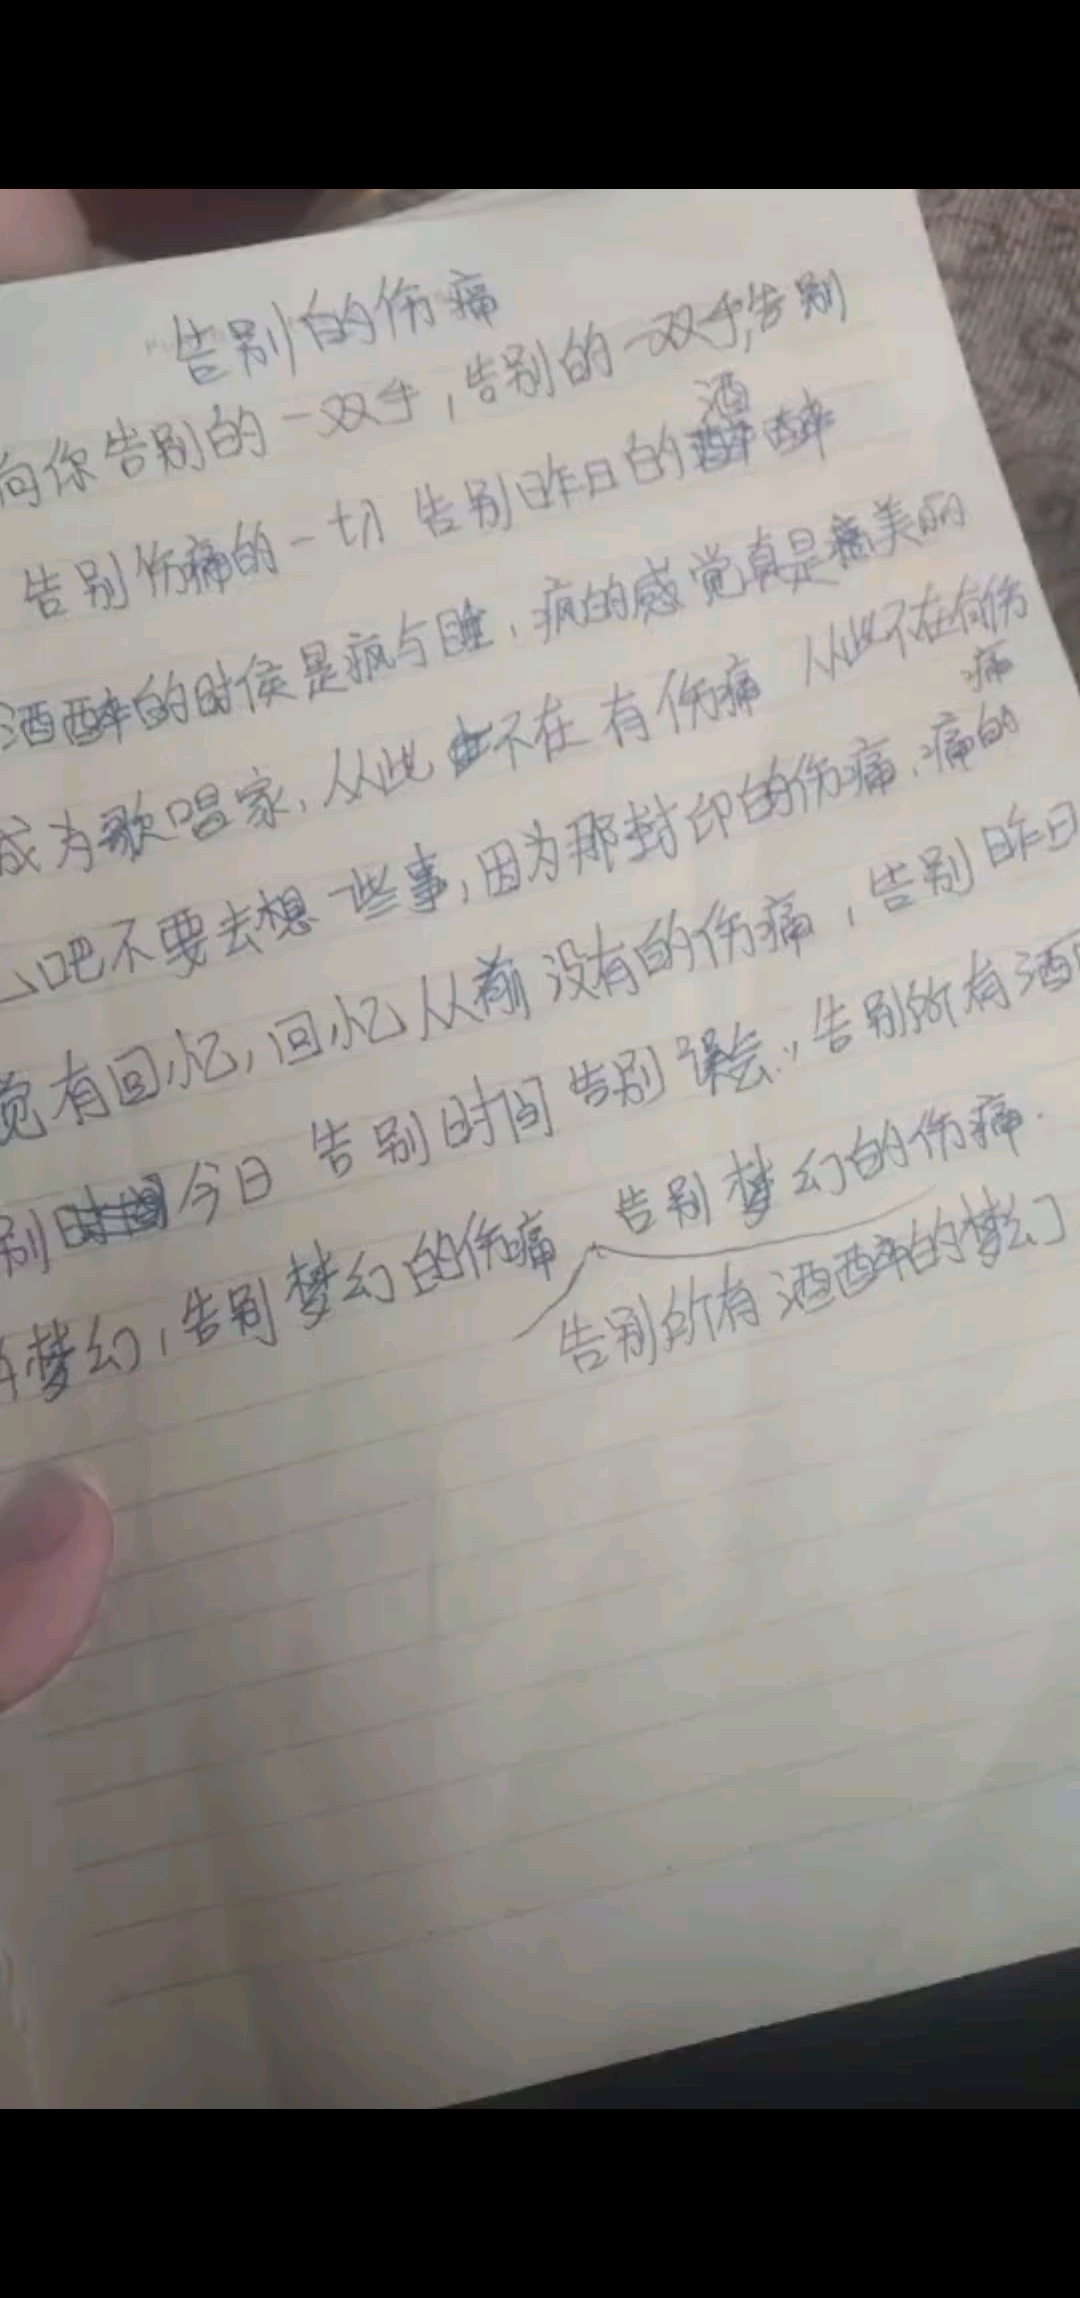 告别的伤痛
向你告别的一双手，告别的一双手，告别
告别伤痛的一切 告别昨日的酒醉
酒醉的时侯是疯与睡，疯的感觉真是痛美丽
成为歌唱家，从此不在有伤痛 从此不在有伤痛
吧不要去想一些事，因为那封印的伤痛，痛的
觉有回忆，回忆从前没有的伤痛，告别昨日
别今日 告别时间 告别误会，告别所有酒
梦幻，告别梦幻的伤痛 告别梦幻的伤痛.
告别所有酒醉的梦幻